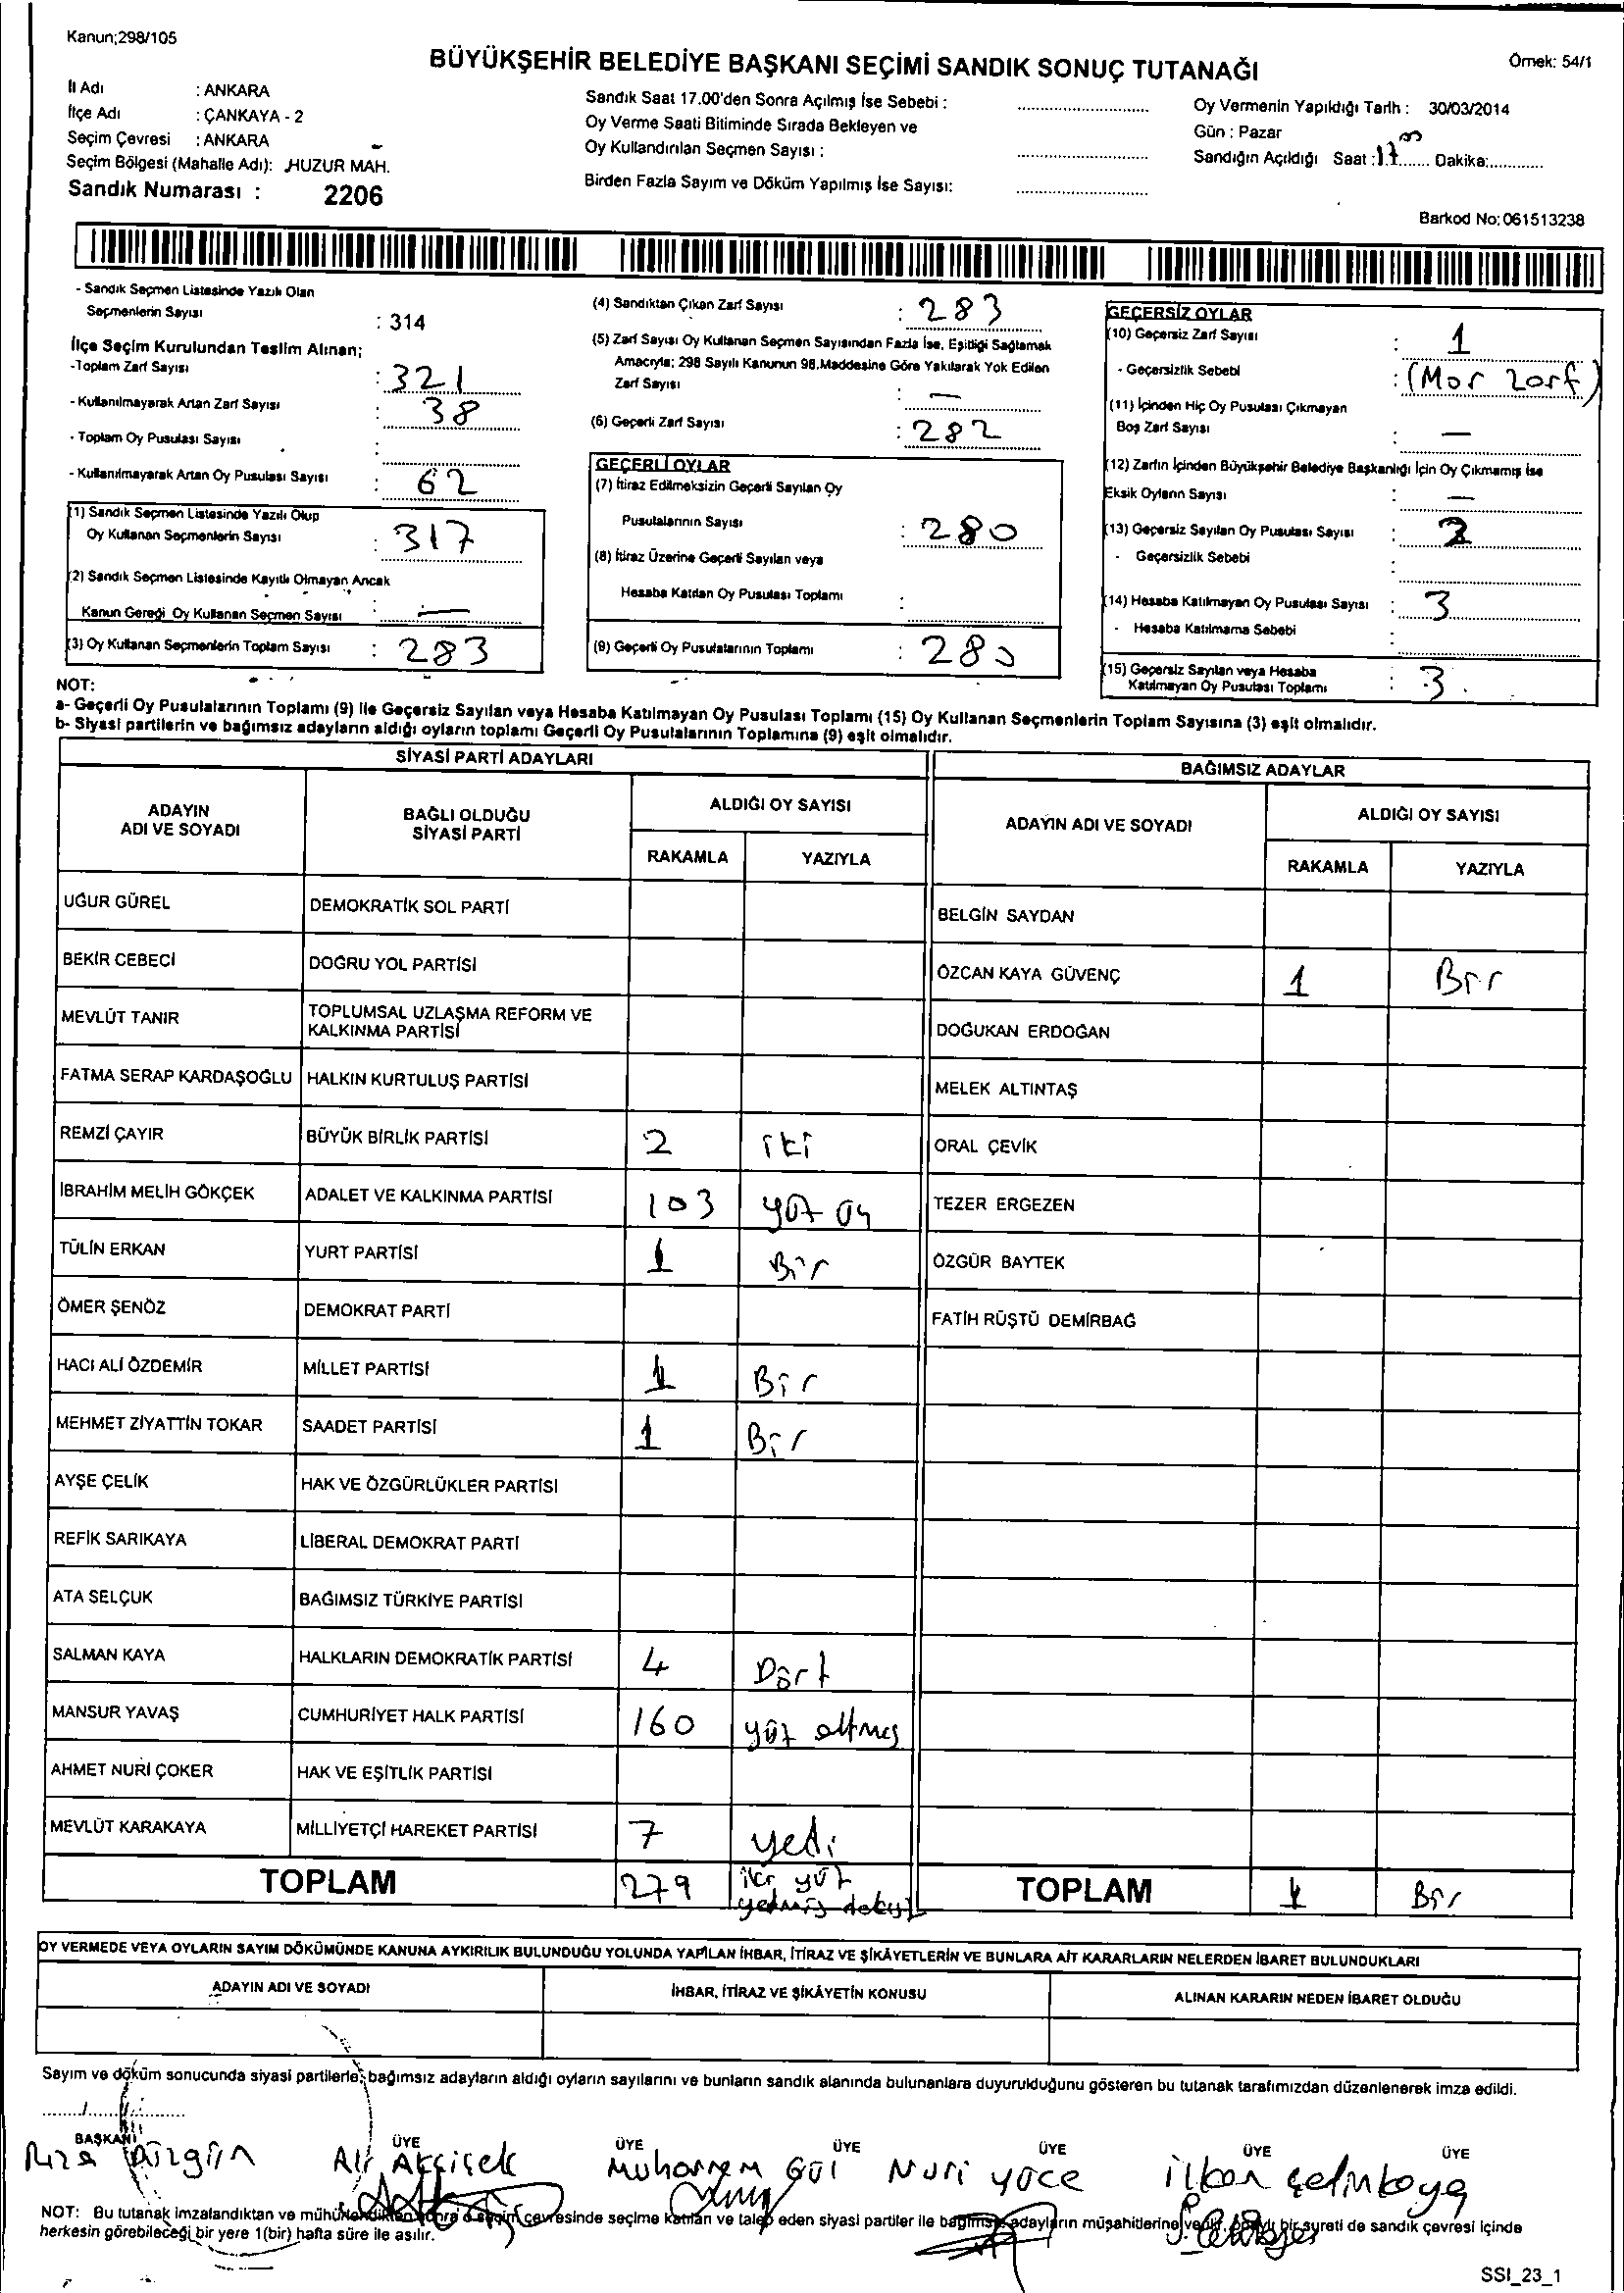 Kanun;298/105
BÜYÜKŞEHİR BELEDİYE BAŞKANI SEÇİMİ SANDIK SONUÇ TUTANAĞI
Örnek: 54/1
İl Adı : ANKARA
İlçe Adı : ÇANKAYA - 2
Seçim Çevresi : ANKARA
Seçim Bölgesi (Mahalle Adı): HUZUR MAH.
Sandık Numarası : 2206
Sandık Saat 17.00'den Sonra Açılmış İse Sebebi :
Oy Verme Saati Bitiminde Sırada Bekleyen ve
Oy Kullandırılan Seçmen Sayısı :
Birden Fazla Sayım ve Döküm Yapılmış İse Sayısı:
Oy Vermenin Yapıldığı Tarih : 30/03/2014
Gün : Pazar
Sandığın Açıldığı Saat : 17 00 Dakika:
Barkod No: 061513238
- Sandık Seçmen Listesinde Yazılı Olan
Seçmenlerin Sayısı : 314
İlçe Seçim Kurulundan Teslim Alınan;
-Toplam Zarf Sayısı : 321
- Kullanılmayarak Artan Zarf Sayısı : 38
- Toplam Oy Pusulası Sayısı :
- Kullanılmayarak Artan Oy Pusulası Sayısı : 62
(1) Sandık Seçmen Listesinde Yazılı Olup
Oy Kullanan Seçmenlerin Sayısı : 317
(2) Sandık Seçmen Listesinde Kayıtlı Olmayan Ancak
Kanun Gereği Oy Kullanan Seçmen Sayısı : —
(3) Oy Kullanan Seçmenlerin Toplam Sayısı : 283
(4) Sandıktan Çıkan Zarf Sayısı : 283
(5) Zarf Sayısı Oy Kullanan Seçmen Sayısından Fazla İse, Eşitliği Sağlamak
Amacıyla; 298 Sayılı Kanunun 98.Maddesine Göre Yakılarak Yok Edilen
Zarf Sayısı : —
(6) Geçerli Zarf Sayısı : 282
GEÇERLİ OYLAR
(7) İtiraz Edilmeksizin Geçerli Sayılan Oy
Pusulalarının Sayısı : 280
(8) İtiraz Üzerine Geçerli Sayılan veya
Hesaba Katılan Oy Pusulası Toplamı :
(9) Geçerli Oy Pusulalarının Toplamı : 280
GEÇERSİZ OYLAR
(10) Geçersiz Zarf Sayısı : 1
- Geçersizlik Sebebi : (Mor zarf)
(11) İçinden Hiç Oy Pusulası Çıkmayan
Boş Zarf Sayısı : —
(12) Zarfın İçinden Büyükşehir Belediye Başkanlığı İçin Oy Çıkmamış İse
Eksik Oyların Sayısı : —
(13) Geçersiz Sayılan Oy Pusulası Sayısı :
- Geçersizlik Sebebi :
(14) Hesaba Katılmayan Oy Pusulası Sayısı : 3
- Hesaba Katılmama Sebebi :
(15) Geçersiz Sayılan veya Hesaba
Katılmayan Oy Pusulası Toplamı : 3
NOT:
a- Geçerli Oy Pusulalarının Toplamı (9) ile Geçersiz Sayılan veya Hesaba Katılmayan Oy Pusulası Toplamı (15) Oy Kullanan Seçmenlerin Toplam Sayısına (3) eşit olmalıdır.
b- Siyasi partilerin ve bağımsız adayların aldığı oyların toplamı Geçerli Oy Pusulalarının Toplamına (9) eşit olmalıdır.
SİYASİ PARTİ ADAYLARI
ADAYIN ADI VE SOYADI
BAĞLI OLDUĞU SİYASİ PARTİ
ALDIĞI OY SAYISI
RAKAMLA YAZIYLA
UĞUR GÜREL DEMOKRATİK SOL PARTİ
BEKİR CEBECİ DOĞRU YOL PARTİSİ
MEVLÜT TANIR TOPLUMSAL UZLAŞMA REFORM VE
KALKINMA PARTİSİ
FATMA SERAP KARDAŞOĞLU HALKIN KURTULUŞ PARTİSİ
REMZİ ÇAYIR BÜYÜK BİRLİK PARTİSİ 2 iki
İBRAHİM MELİH GÖKÇEK ADALET VE KALKINMA PARTİSİ 103 yüz üç
TÜLİN ERKAN YURT PARTİSİ 1 Bir
ÖMER ŞENÖZ DEMOKRAT PARTİ
HACI ALİ ÖZDEMİR MİLLET PARTİSİ 1 Bir
MEHMET ZİYATTİN TOKAR SAADET PARTİSİ 1 Bir
AYŞE ÇELİK HAK VE ÖZGÜRLÜKLER PARTİSİ
REFİK SARIKAYA LİBERAL DEMOKRAT PARTİ
ATA SELÇUK BAĞIMSIZ TÜRKİYE PARTİSİ
SALMAN KAYA HALKLARIN DEMOKRATİK PARTİSİ 4 Dört
MANSUR YAVAŞ CUMHURİYET HALK PARTİSİ 160 yüz altmış
AHMET NURİ ÇOKER HAK VE EŞİTLİK PARTİSİ
MEVLÜT KARAKAYA MİLLİYETÇİ HAREKET PARTİSİ 7 yedi
TOPLAM 279 iki yüz
yetmiş dokuz
BAĞIMSIZ ADAYLAR
ADAYIN ADI VE SOYADI
ALDIĞI OY SAYISI
RAKAMLA YAZIYLA
BELGİN SAYDAN
ÖZCAN KAYA GÜVENÇ 1 Bir
DOĞUKAN ERDOĞAN
MELEK ALTINTAŞ
ORAL ÇEVİK
TEZER ERGEZEN
ÖZGÜR BAYTEK
FATİH RÜŞTÜ DEMİRBAĞ
TOPLAM 1 Bir
OY VERMEDE VEYA OYLARIN SAYIM DÖKÜMÜNDE KANUNA AYKIRILIK BULUNDUĞU YOLUNDA YAPILAN İHBAR, İTİRAZ VE ŞİKÂYETLERİN VE BUNLARA AİT KARARLARIN NELERDEN İBARET BULUNDUKLARI
ADAYIN ADI VE SOYADI İHBAR, İTİRAZ VE ŞİKÂYETİN KONUSU ALINAN KARARIN NEDEN İBARET OLDUĞU
Sayım ve döküm sonucunda siyasi partilerle, bağımsız adayların aldığı oyların sayılarını ve bunların sandık alanında bulunanlara duyurulduğunu gösteren bu tutanak tarafımızdan düzenlenerek imza edildi.
BAŞKAN ÜYE ÜYE ÜYE ÜYE ÜYE ÜYE
Rıza Düzgün Ali Akçiçek Muharrem Gül Nuri yüce ilker çetinkaya
NOT: Bu tutanak imzalandıktan ve mühürlendikten sonra o seçim çevresinde seçime katılan ve talep eden siyasi partiler ile bağımsız adayların müşahitlerine verilir, onaylı bir sureti de sandık çevresi içinde
herkesin görebileceği bir yere 1(bir) hafta süre ile asılır.
SSI_23_1